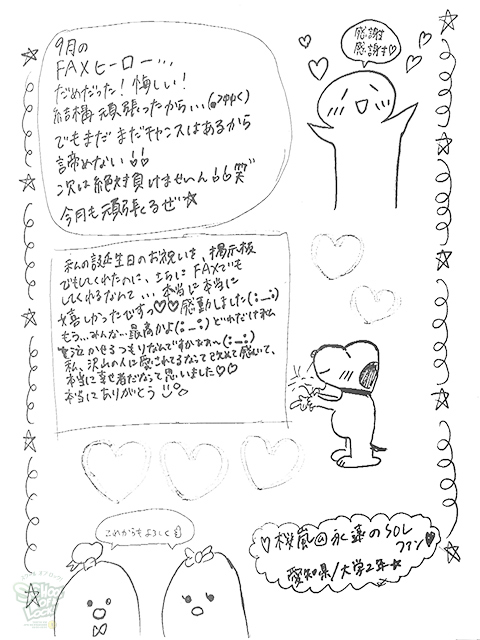 9月の
FAXヒーロー…
だめだった!悔しい!
結構頑張ったから…
でもまだまだチャンスはあるから
諦めない
次は絶対負けませーん 笑
今月も頑張るぜ☆
感謝
感謝♡
私の誕生日のお祝いを、掲示板
でもしてくれたのに、さらにFAXでも
してくれるなんて…本当に本当に
嬉しかったですっ♡♡感動しました(;_;)
もう…みんな…最高かよ(;_;)どれだけ私
泣かせるつもりなんですかぁぁ〜(;_;)
私、沢山の人に愛されてるなって改めて感じて、
本当に幸せ者だなって思いました♡♡
本当にありがとう
これからもよろしく
♡桜嵐@永遠のSOL
ファン♥
愛知県/大学2年☆